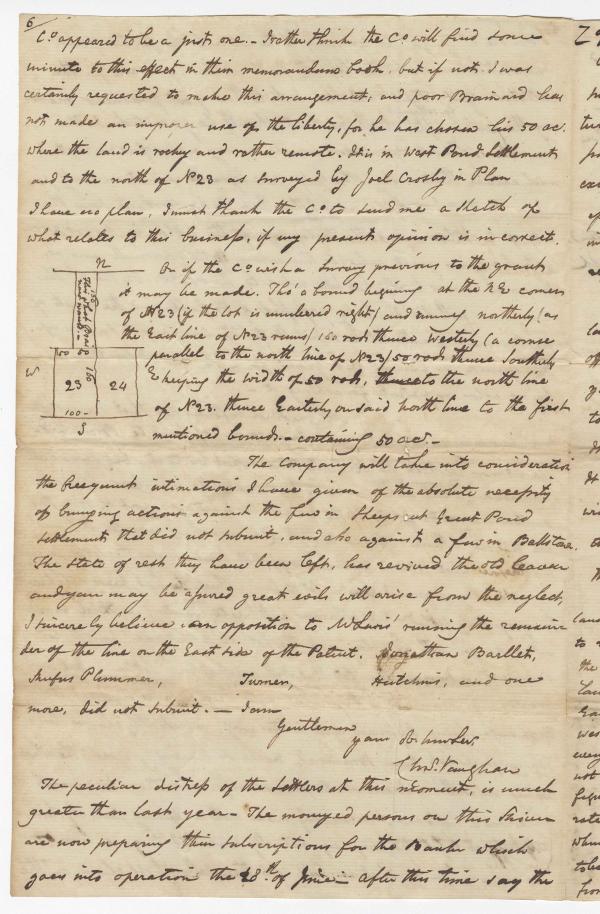 6
Co appeared to be a just one. – I rather think the Co will find some
minute to this effect in their memorandum book, but if not I was
certainly requested to make this arrangement; and poor Brainard has
not made an improper use of the liberty, for he has chosen his 50 ac.
where the land is rocky and rather remote. It is in West Pond Settlement
and to the north of No 23 as surveyed by Joel Crosby in Plan
I have no plan, I must thank the Co to send me a sketch of
what relates to this business, if my present opinion is incorrect.
N
Or if the Co wish a survey previous to the grant
it may be made. Tho' a bound begining at the NE corner
of No 23 (if the lot is numbered right) and running northerly (as
the East line of No 23 runs) 160 rods thence westerly (a course
parallel to the north line of No 23) 50 rods thence Southerly
keeping the width of 50 rods, thence to the north line
of No 23. thence Easterly on said north line to the first
mentioned bounds. – containing 50 ac. –
160
50
W
E
23
24
160
100 –
S
The Company will take into consideration
the frequent intimations I have given of the absolute necessity
of bringing actions against the few in Sheepscut Great Pond
settlements that did not submit, and also against a few in Ballstown.
The state of rest they have been left, has revived the old leaven
and you may be assured great evils will arise from the neglect,
I sincerely believe an opposition to Mr Davis' running the remain
der of the line on the East side of the Patent. Jonathan Bartlet,
Rufus Plummer, Turner, Hutchins, and one
more, did not submit. – I am
Gentlemen
your Ob. humb. Ser.
Chs. Vaughan
The peculiar distress of the settlers at this moment, is much
greater than last year – The moneyed persons on this River
are now preparing their subscriptions for the Bank which
goes into operation the 28th of June – after this time say the